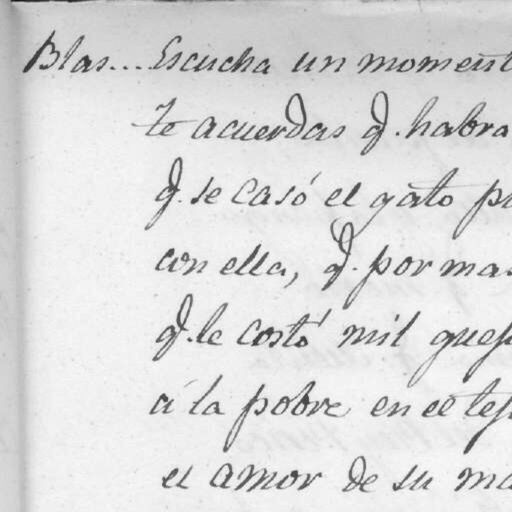 Blas... Escucha un moment
te acuerdas q. habra
q. se casó el gato
con ella, q. por
q. le costó mil
á la pobre en el
el amor de su